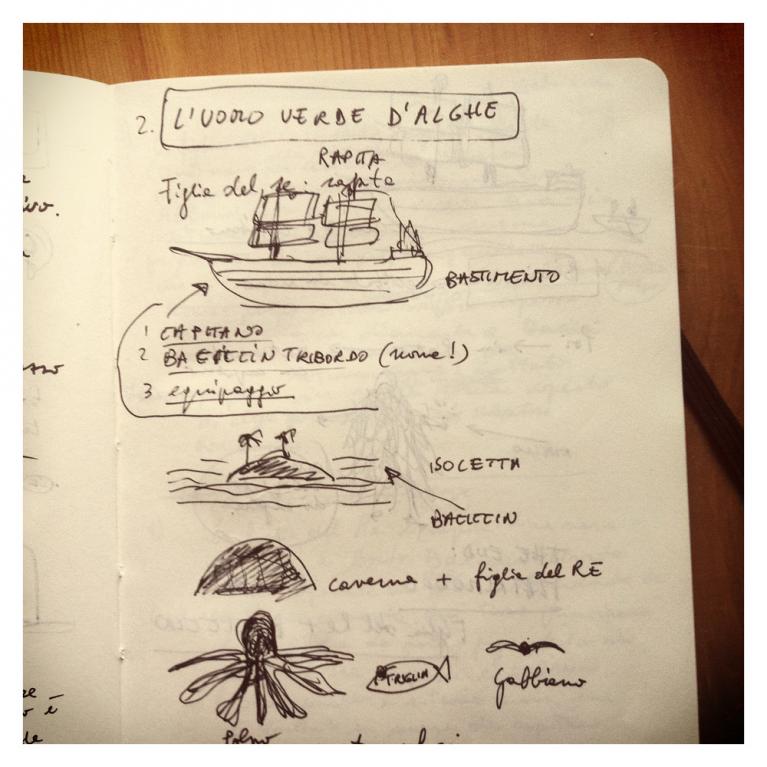 2. L'UOMO VERDE D'ALGHE
RAPITA
Figlia del
BASTIMENTO
1 CAPITANO
2 BACICCIN TRIBORDO (nome!)
3 equipaggio
ISOLETTA
BACICCIN
caverna + figlia del RE
TRIGLIA
Gabbiano